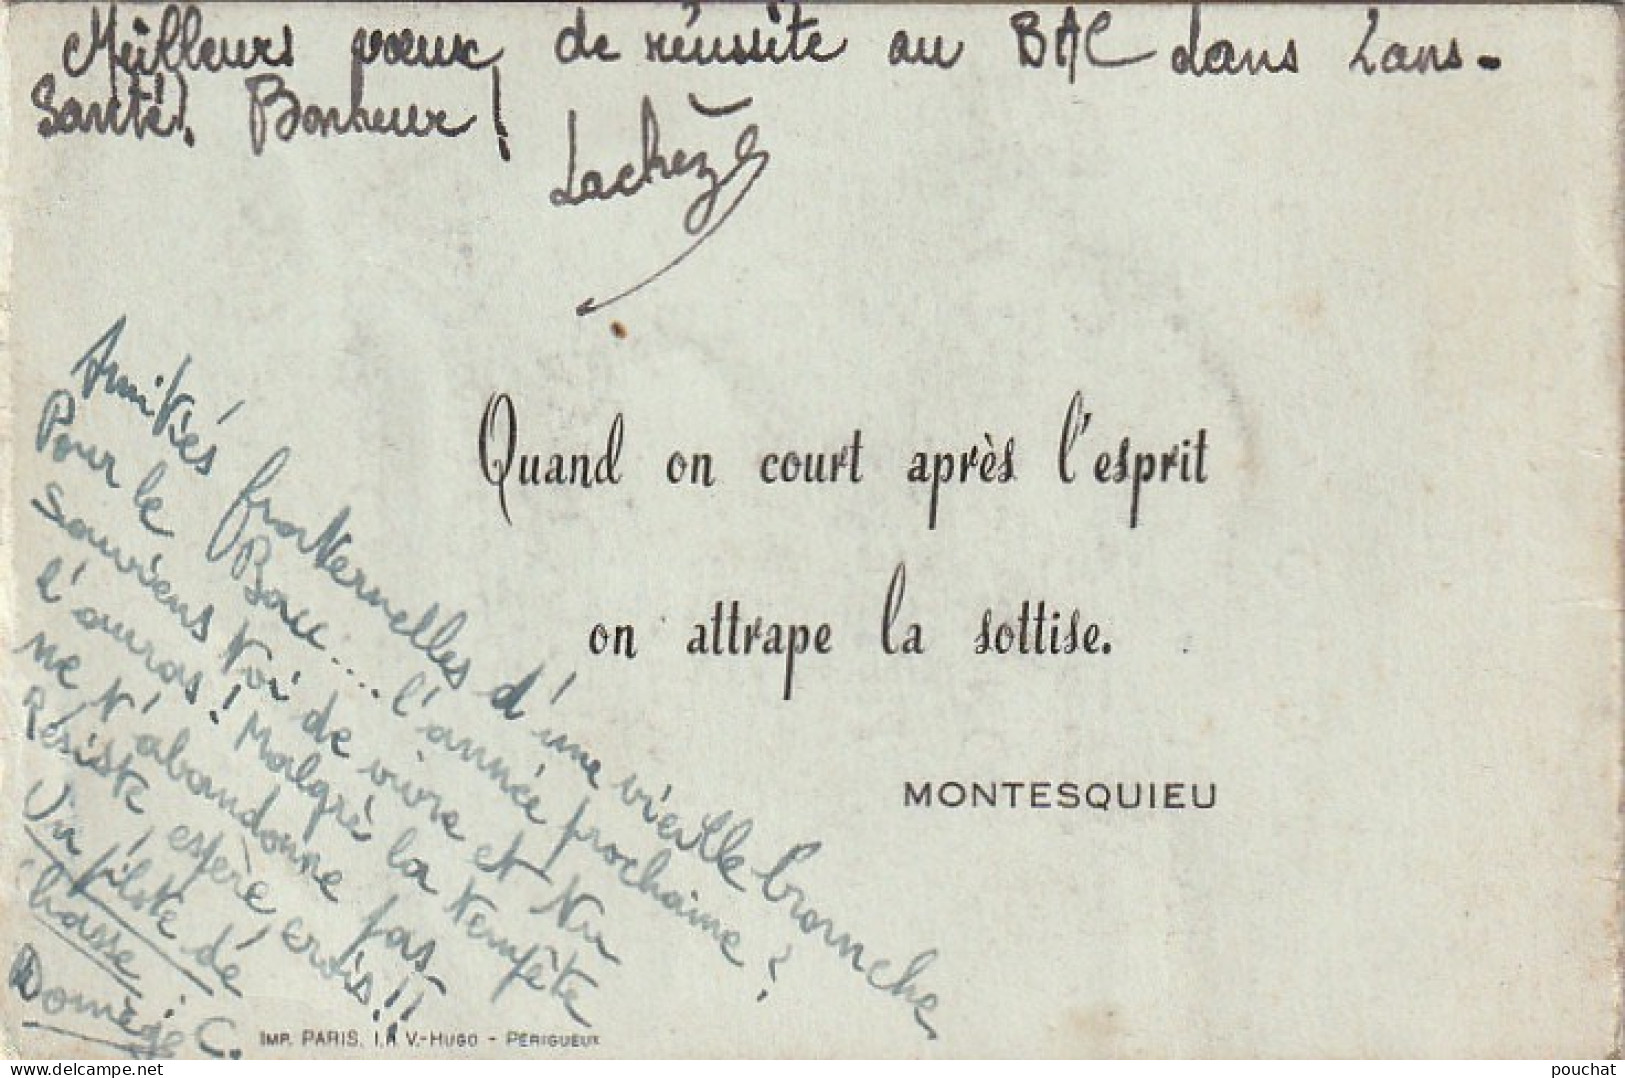 Meilleurs vœux de réussite au BAC dans 2 ans.
Santé. Bonheur!
Lachèze
Quand on court après l'esprit
on attrape la sottise.
MONTESQUIEU
Amitiés fraternelles d'une vieille branche
Pour le Bac... l'année prochaine?
Souviens toi de vivre et tu
l'auras! Malgré la tempête
ne t'abandonne pas
Résiste, espère, crois!!
Un pilote de
chasse:
Domège C.
IMP. PARIS, V.-HUGO - PÉRIGUEUX
pouchat